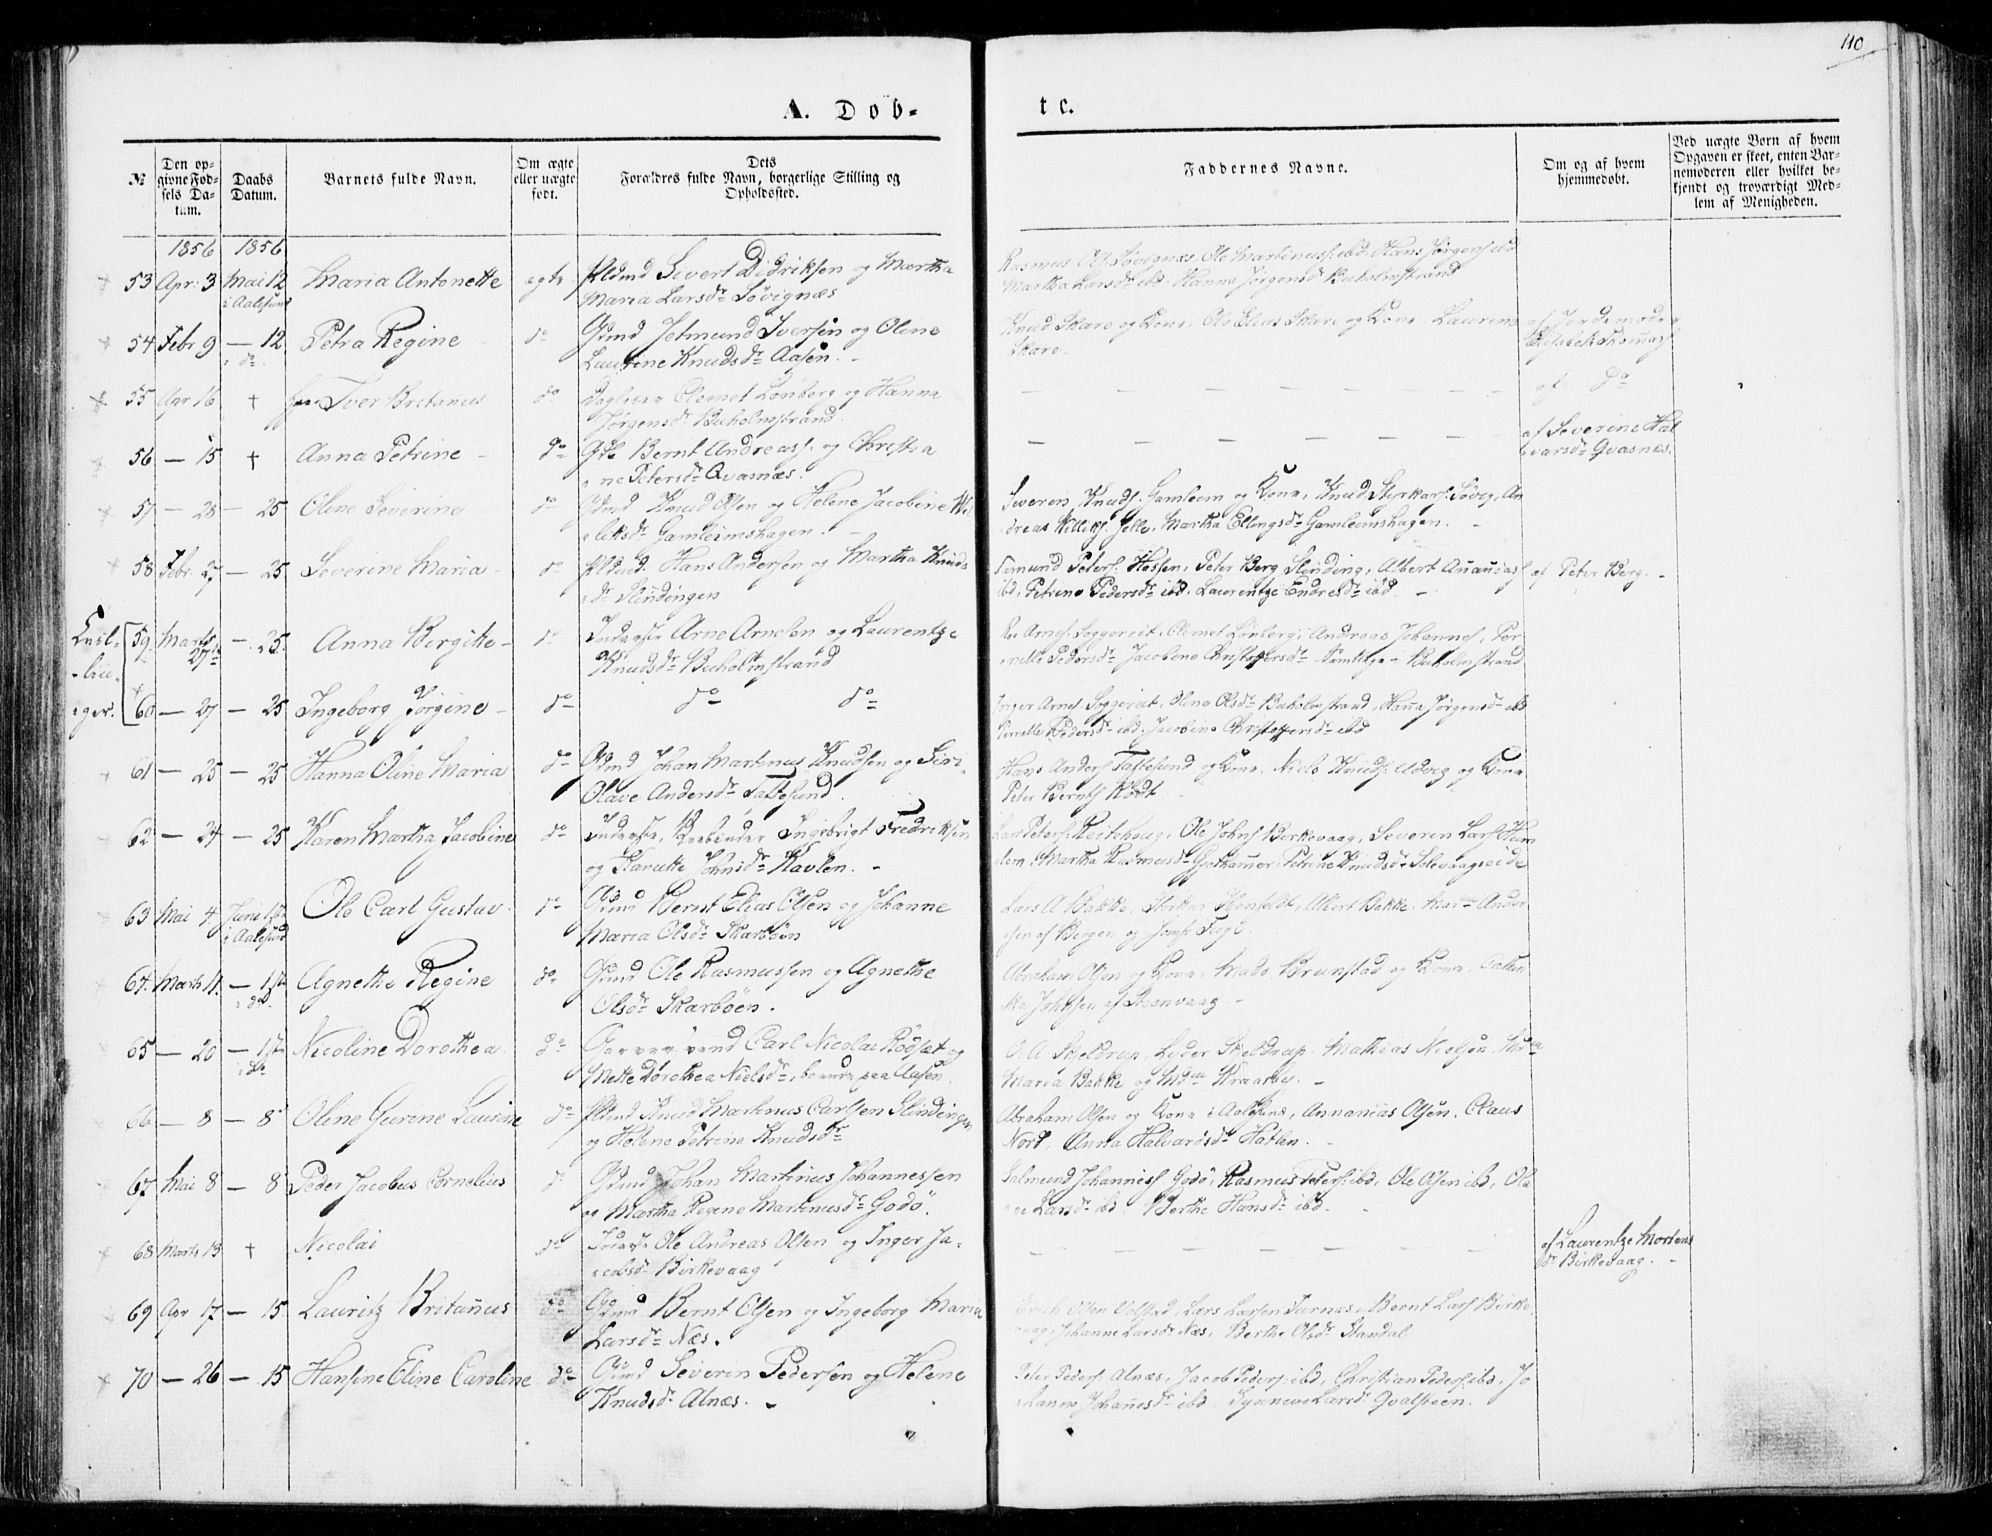 110
A. Døb-
te.
№
Den opgivne Fødsels Datum.
Daabs Datum.
Barnets fulde Navn.
Om ægte eller uægte født.
Dets Forældres fulde Navn, borgerlige Stilling og Opholdssted.
Faddernes Navne.
Om og af hvem hjemmedøbt.
Ved uægte Børn af hvem Opgaven er skeet, enten Barnemoderen eller hvilket bekjendt og troværdigt Medlem af Menigheden.
1856 1856
53 Apr. 3 Mai 12 Maria Antonette egte Pldmd Sivert Didriksen og Martha
i Aalesund Maria Larsdr Søvignæs
Rasmus Ols. Søvignæs, Ole Martinuss. ibd, Hans Jørgens ibd
Martha Larsdr ibd. Hanna Jørgensdr Buholmstrand
54 Febr 9 — 12 Petra Regine do Gmd Jetmund Iversen og Oline
do Laurine Knudsdr Aasen.
Knud Skare og Kone, Ole Elias Skare og Kone, Laurine
Skare.
af Jordemoder
55 Apr 16 † Iver Britanus do Daglejer Clemet Lønberg og Hanna
Jørgensdr Buholmstrand
— — — — — — af Do
56 — 15 † Anna Petrine do Gbr Bernt Andreass. og Christia
ne Petersdr Qvasnæs.
— — — — — — af Severine Hal
varsdr Qvasnæs.
57 — 28 — 25 Oline Severine do Gmd Knud Olsen og Helene Jacobine Wil
leksdr Gamleimshagen.
Severin Knuds. Gamleem og Kone, Knud Styrkars. Søvig, An
dreas Williks. Jelle, Martha Ellingsdr Gamleimshagen.
58 Febr. 27 — 25 Severine Maria do Pldmd. Hans Andersen og Martha Knuds
dr Slindingen
Jemund Peters. Hessen, Peter Berg Slinding, Albert Ananias
ibd, Petrine Pedersdr ibd. Laurentze Endresdr ibd.
af Peter Berg.
59 Marts 27 — 25. Anna Birgitte do Inderste Arne Arnesen og Laurentze
Knudsdr Buholmstrand
Arnes. Soggereit, Clemet Lønberg, Andreas Johannes., Per
nelle Pedersdr Jacobine Christoffersdr Samtlige Buholmstrand
60 — 27 — 25 Ingeborg Jørgine do do do
Arnes Soggereit, Oline Olsdr Buholmstrand, Hanna Jørgensdr ibd
Pernelle Pedersdr ibd. Jacobine Christoffersdr ibd
61 — 25 — 25 Hanna Oline Maria do Gmd Johan Martinus Knudsen og Siri
Olave Andersdr Taftesund.
Hans Anders Taftesund og Kone. Niels Knuds. Udvig og Kone
Peter Bernts Rødt
62 — 24 — 25 Karen Martha Jacobine do Inderste, Ingebrigt Fredriksen
og Johnsdr Havlen.
Lars Peters. Reitehoug, Ole Johns Birkevaag, Severin Lars
Martha Rasmusdr Petrine Knudsdr Solevaagseide
63 Mai 4 Juni 1ste Ole Carl Gustav do Gmd Bernt Elias Olsen og Johanne
i Aalesund Maria Olsdr Skarbøen
Lars A Bakke, Albert Bakke, Ander
sen af Bergen og
64. Marts 11. — 1ste Agnethe Regine do Gmd Ole Rasmussen og Agnethe
do Olsdr Skarbøen.
Abraham Olsen og Kone, Mads Brunstad og Kone, Cathri
65 — 20 — 1ste Nicoline Dorothea do Carl Nicolai Rødset og
do Mette Dorothea Nielsdr, boende paa Aasen
O. A. Skjeldrup, Lyder Skjeldrup. Mathias Nielsen,
Maria Bakke og Mdm Kraaby.
66 — 8 — 8 Oline Gurine Laurine do Pldmd Knud Martinus Carlsen Slindingen
og Helene Petrine Knudsdr
Abraham Olsen og Kone i Aalesund, Annanias Olsen, Claus
Nord, Anna Halvardsdr Hatlen.
67 Mai 8 — 8 Peder Jacobus Cornelius do Gmd Johan Martinus Johannessen
og Martha Regine Martinusdr Godø.
Salmund Johanness Godø, Rasmus Peters. ibd, Ole Olsen ibd, Ola
ve Larsdr ibd. Berthe Hansdr ibd.
68 Marts 13 † Nicolai do Inderste Ole Andreas Olsen og Inger Ja
cobsdr Birkevaag
— — — — — — af Laurentze Mortens
dr Birkevaag.
69 Apr 17 — 15 Lauritz Britannus do Gmd Bernt Olsen og Ingeborg Maria
Larsdr Næs.
Lars Larsen Bernt Lars Birke
vaag, Johanne Larsdr Næs, Berthe Olsdr Standal
70 — 26 — 15 Hansine Eline Caroline do Gmd Severin Pedersen og Helene
Knudsdr Alnæs.
Peter Peders. Alnæs, Jacob Peders. ibd, Christian Peders. ibd, Jo
hanne Johannesdr ibd. Synneve Larsdr Qvalsteen.